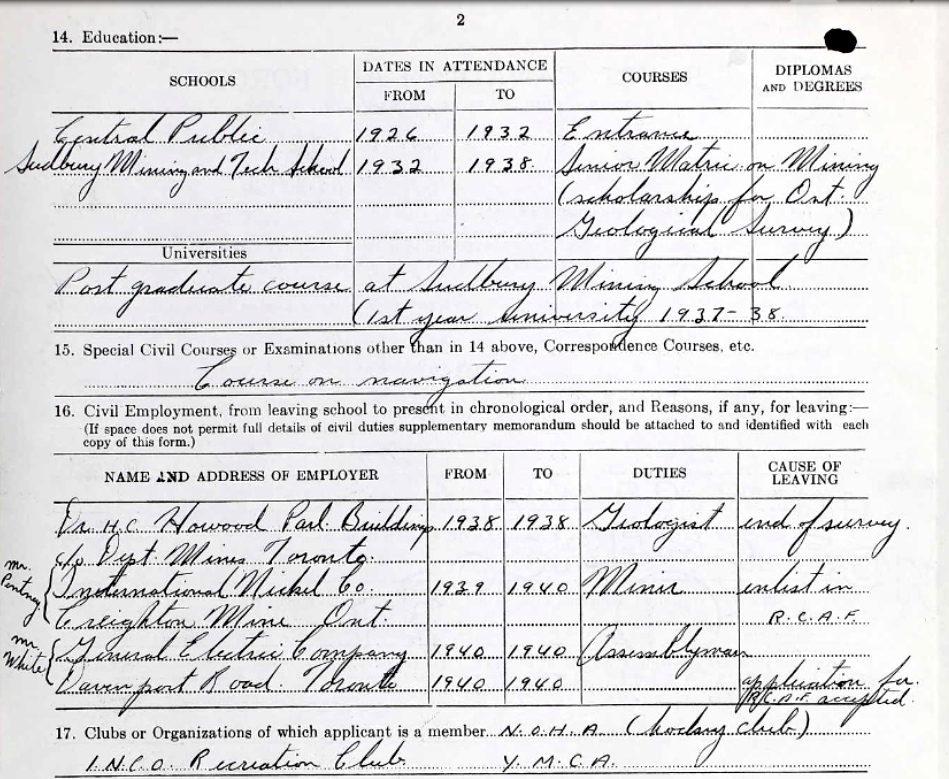 2
14. Education:—
SCHOOLS DATES IN ATTENDANCE COURSES DIPLOMAS AND DEGREES
FROM TO
Central Public 1926 1932 Entrance
Sudbury Mining and Tech School 1932 1938. Senior Matric on Mining
(scholarship for Ont.
Geological Survey)
Universities
Post graduate course at Sudbury Mining School
(1st year University 1937-38
15. Special Civil Courses or Examinations other than in 14 above, Correspondence Courses, etc.
Course on navigation
16. Civil Employment, from leaving school to present in chronological order, and Reasons, if any, for leaving:—
(If space does not permit full details of civil duties supplementary memorandum should be attached to and identified with each
copy of this form.)
NAME AND ADDRESS OF EMPLOYER FROM TO DUTIES CAUSE OF LEAVING
Dr. H.C. Howood Parl. Buildings 1938 1938 Geologist end of survey.
c/o Dept. Mines Toronto.
mr. Pentney { International Nickel Co. 1939 1940 Miner enlist in
Creighton Mine Ont. R.C.A.F.
mr. White { General Electric Company 1940 1940 Assemblyman
Davenport Road. Toronto 1940 1940 application for.
R.C.A.F. accepted.
17. Clubs or Organizations of which applicant is a member N.O.H.A (hockey club)
I.N.C.O. Recreation Club Y.M.C.A.